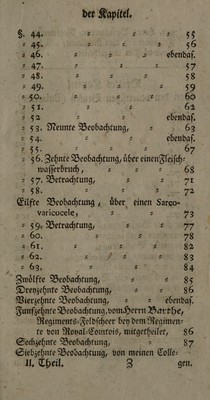 der Kapitel.
§. 44. = = = 55
= 45. = = = 56
= 46. = = = ebendas.
= 47. = = = 57
= 48. = = = 58
= 49. = = = 59
= 50. = = = 60
= 51. = = = 62
= 52 = = = ebendas.
= 53. Neunte Beobachtung, = 63
= 54. = = = ebendas.
= 55. = = = 67
= 56. Zehnte Beobachtung, über einen Fleisch-
wasserbruch, = = 68
= 57. Betrachtung, = = 71
= 58. = = = 72
Eilfte Beobachtung, über einen Sarco-
varicocele, = = 73
= 59. Betrachtung, = = 77
= 60. = = = 78
= 61. = = = 82
= 62. = = = 83
= 63. = = = 84
Zwölfte Beobachtung, = = 85
Dreyzehnte Beobachtung, = = 86
Vierzehnte Beobachtung, = = ebendas.
Funfzehnte Beobachtung, vom Herrn Barthe,
Regiments-Feldscheer bey dem Regimen-
te von Royal-Comtois, mitgetheilet, 86
Sechzehnte Beobachtung, = 87
Siebzehnte Beobachtung, von meinen Colle-
II. Theil. Z gen.